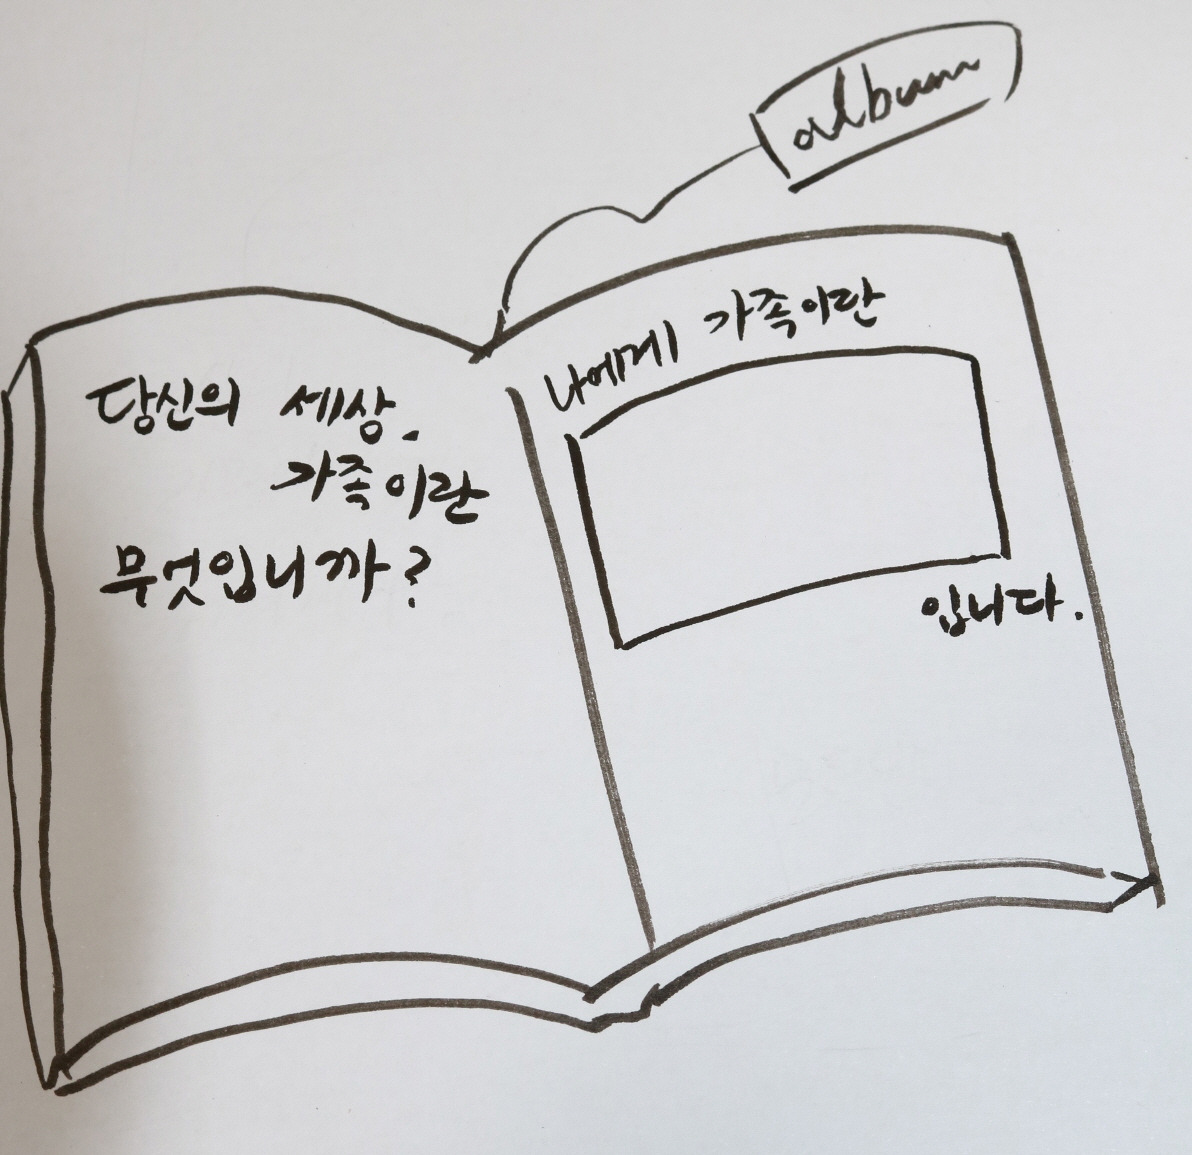 album
당신의 세상.
가족이란
무엇입니까?
나에게 가족이란
입니다.